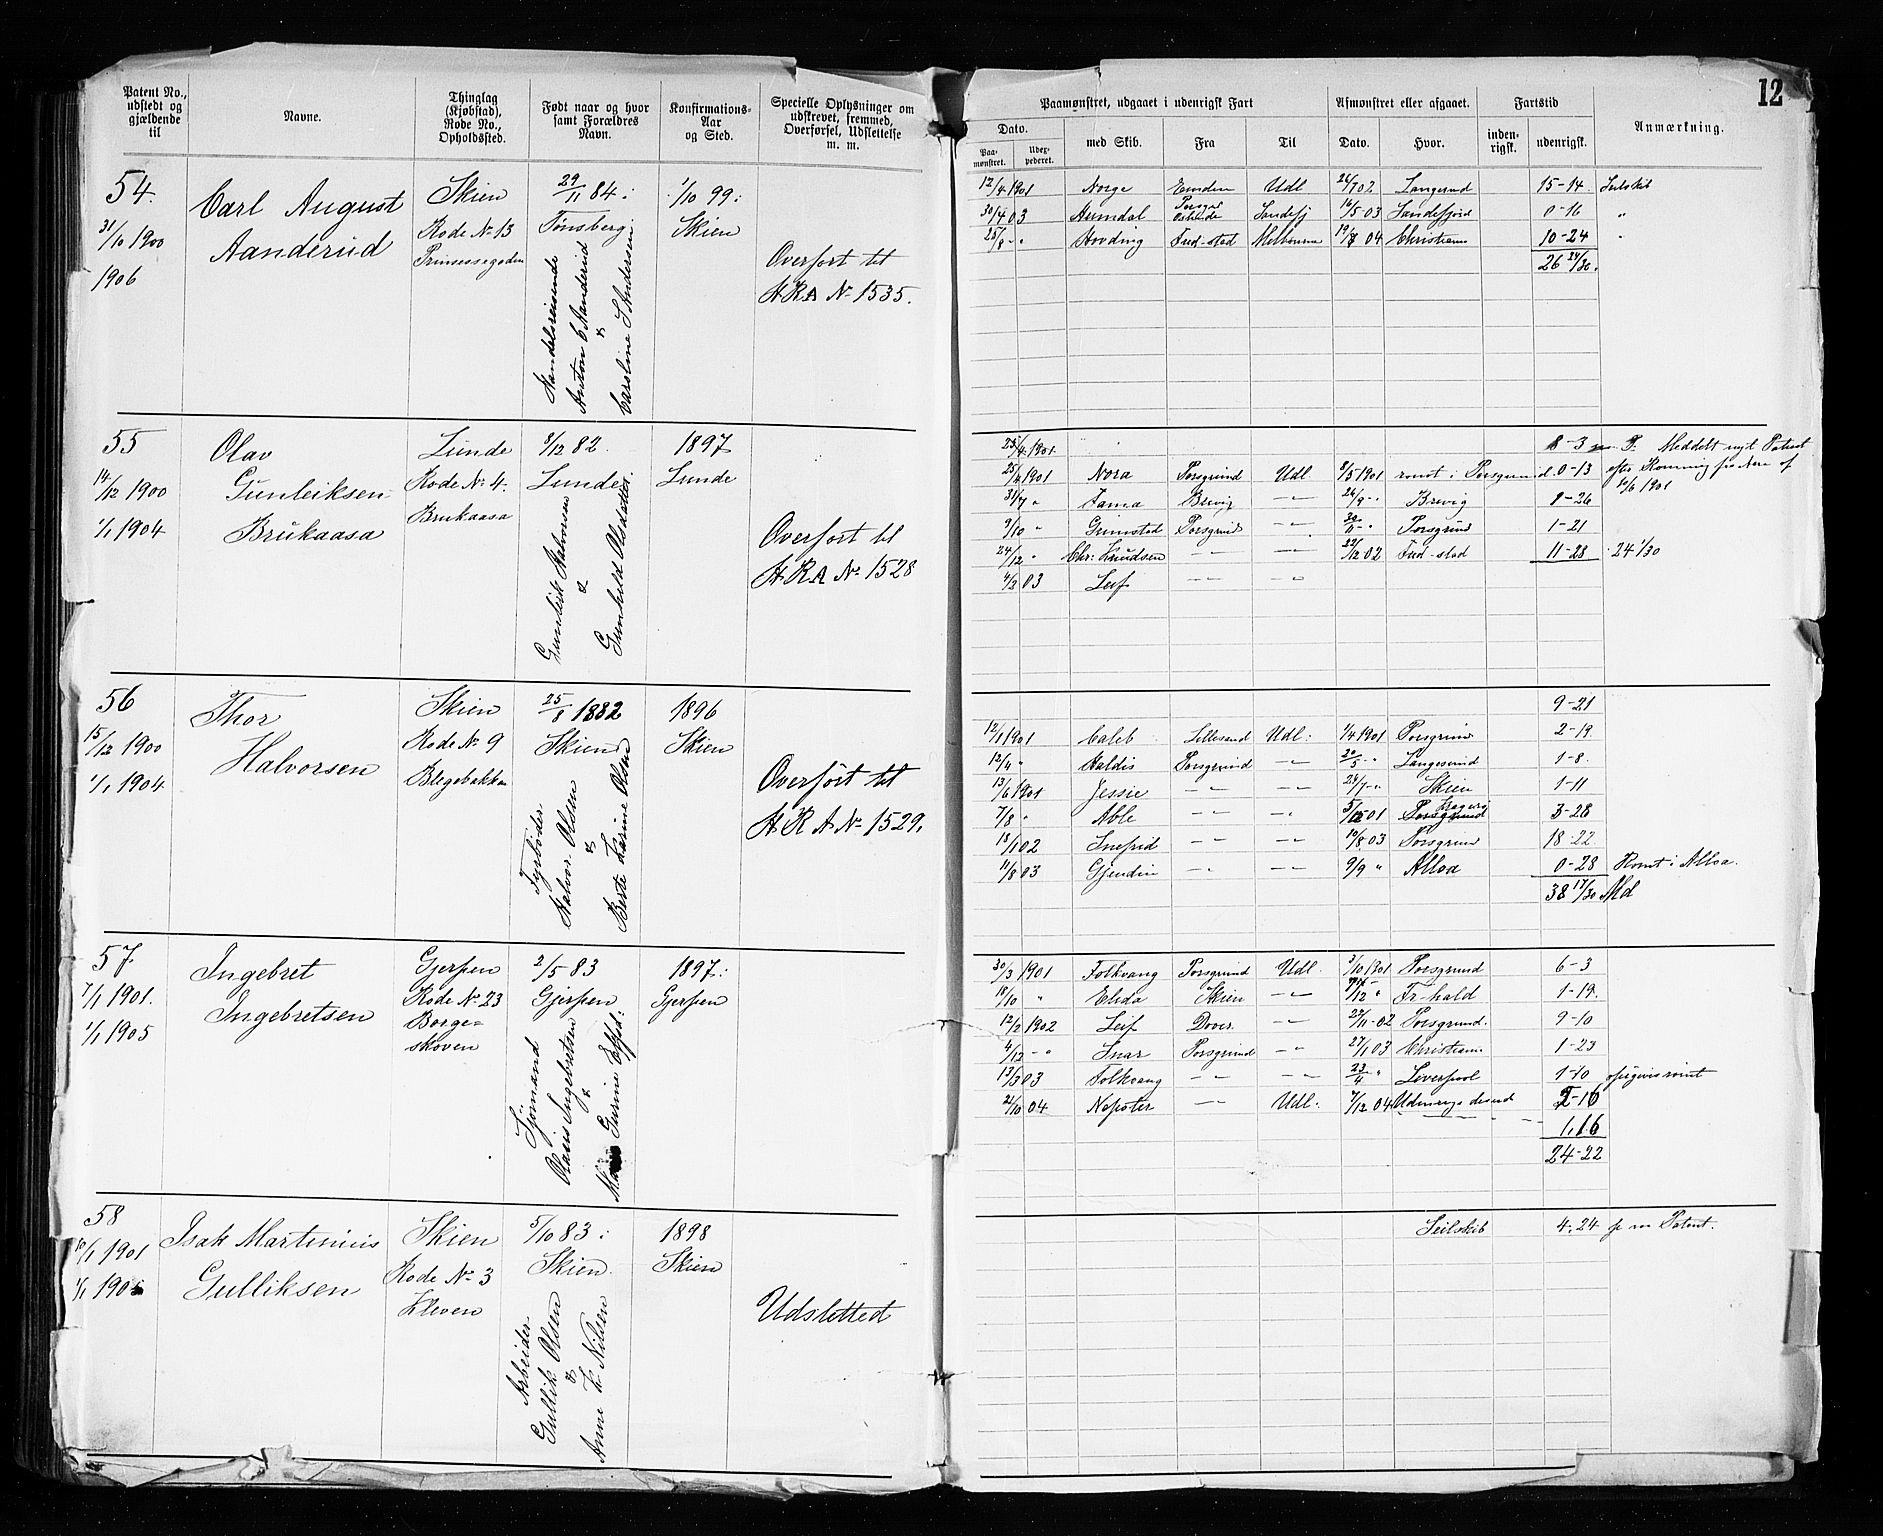 12
Patent No., udstedt og gjældende til
Navne.
Thinglag (Kjøbstad), Rode No., Opholdssted.
Født naar og hvor samt Forældres Navn.
Konfirmations-Aar og Sted.
Specielle Oplysninger om udskrevet, fremmed, Overførsel, Udslettelse m. m.
Paamønstret, udgaaet i udenrigsk Fart
Afmønstret eller afgaaet.
Fartstid
Anmærkning.
Dato.
Paa-mønstret.
med Skib.
Fra
Til
Dato.
Hvor.
inden-rigsk.
udenrigsk.
54.
31/10 1900
1906
Carl August
Aanderud
Skien
Rode No 13
Prinsessegaden
29/11 84.
Tønsberg
Handelsreisende
Anton C Aanderud
&
Caroline S Andersen
1/10 99.
Skien
Overført til
H.R.A No 1535.
12/4 1901 Norge Emden Udl 26/7 02 Langesund 15-14 Seilskib
30/4 03 Heimdal Ostende Sandefj 16/5 03 Sandefjord 0-16 "
25/8 - " Hovding Fred-stad Melbourne 19/7 04 Christiania 10-24 "
26 24/30.
55
14/12 1900
1/1 1904
Olav
Gunleiksen
Brukaasa
Lunde
Rode No 4.
Brukaasa
8/12 82.
Lunde
Gunleik Halvorsen
&
Gunhild Olsdatter
1897
Lunde
Overført til
H.R.A No 1528
23/4 1901 8-3 Meddelt nyt Patent
25/4 1901 Nora Porsgrund Udl 8/5 1901 romt i Porsgrund 0-13 efter Romning fra Nora af
10/6 1901
31/7 " Fama Brevig -"- 26/9 - " Brevig 1-26
9/10 " Grimstad Porsgrund -"- 30/11 - " Porsgrund 1-21
24/12 " Chr: Knudsen -"- -"- 22/12 02 Fred-stad 11-28 24 1/30
4/2 03 Leif -"- -"-
56
15/12 1900
1/1 1904
Thor
Halvorsen
Skien
Rode No 9
Blegebakken
25/8 1882
Skien
Fyrbøder
Halvor Olsen
&
Berte Karine Olsen
1896
Skien
Overført til
H.R.A No 1529.
9-21
12/1 1901 Caleb Lillesand Udl: 1/4 1901 Porsgrund 2-19
12/4 " Haldis Porsgrund -"- 20/5 - " Langesund 1-8
13/6 1901 Jessie -"- -"- 24/7 - " Skien 1-11
7/8 " Able -"- -"- 5/12 01 3-28
18/1 02 Snefrid -"- -"- 10/8 03 Porsgrund 18-22
11/8 03 Gjendin -"- -"- 9/9 " Alloa 0-28 Romt i Alloa.
38 17/30 Md
57.
7/1 1901.
1/1 1905
Ingebret
Ingebretsen
Gjerpen
Rode No 23
Borge=
skoven
2/5 83
Gjerpen
Sjømand
Olaus Ingebretsen
&
Gurine Elefsd:
1897.
Gjerpen
30/3 1901 Folkvang Porsgrund Udl. 3/10 1901 Porsgrund 6-3
18/10 " Elida Skien -"- /12 " Fr-hald 1-19.
12/2 1902 Leif Dover. -"- 22/11 - 02 Porsgrund. 9-10
4/12 - " Snar Porsgrund -"- 27/1 03 Christiania 1-23
13/3 03 Folkvang -"- -"- 23/4 " Liverpool 1-10 opgives romt
21/10 04 Nepoter -"- Udl: 7/12 04 2-16
1,16
24-22
58
10/1 1901
1/1 1905
Isak Martinius
Gulliksen
Skien
Rode No 3
Kleven
5/10 83
Skien
Arbeider
Gullik Olsen
&
Anne K. Nilsen
1898
Skien
Udsletted
Seilskib 4-24 Patent.